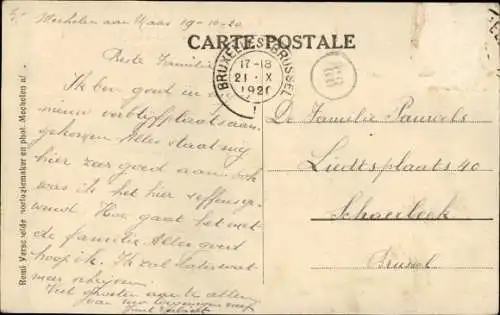 Mechelen aan Maas 19-10-20
CARTE POSTALE
BRUXELLES BRUSSEL
17-18
21 X
1920
1
Beste Familie
Ik ben goed in
nieuw verblijfplaats aan
gekomen Alles staat mij
hier zeer goed aan ook
was ik het hier
gewend. Hoe gaat het met
de familie Alles goed
hoop ik. Ik zal later wat
meer schrijven.
Veel groeten aan te allen
van
De Familie Pauwels
Liedtsplaats 40
Schaerbeek
Brussel
Remi Verschelde
en phot. Mechelen a/